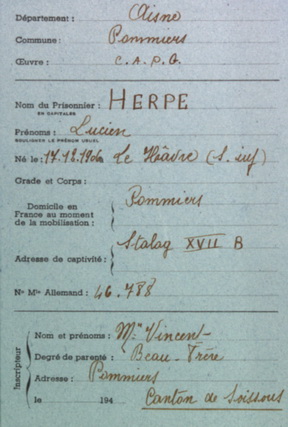 Département : Aisne
Commune : Pommiers
Œuvre : C.A.P.G.
Nom du Prisonnier : HERPE
EN CAPITALES
Prénoms : Lucien
SOULIGNER LE PRÉNOM USUEL
Né le : 17.12.1906 Le Hâvre (S. inf)
Grade et Corps :
Domicile en
France au moment
de la mobilisation : Pommiers
Stalag XVII B
Adresse de captivité :
No Mle Allemand : 46.788
Inscripteur
Nom et prénoms : Mr Vincent
Degré de parenté : Beau-Frère
Adresse : Pommiers
le 194 Canton de Soissons